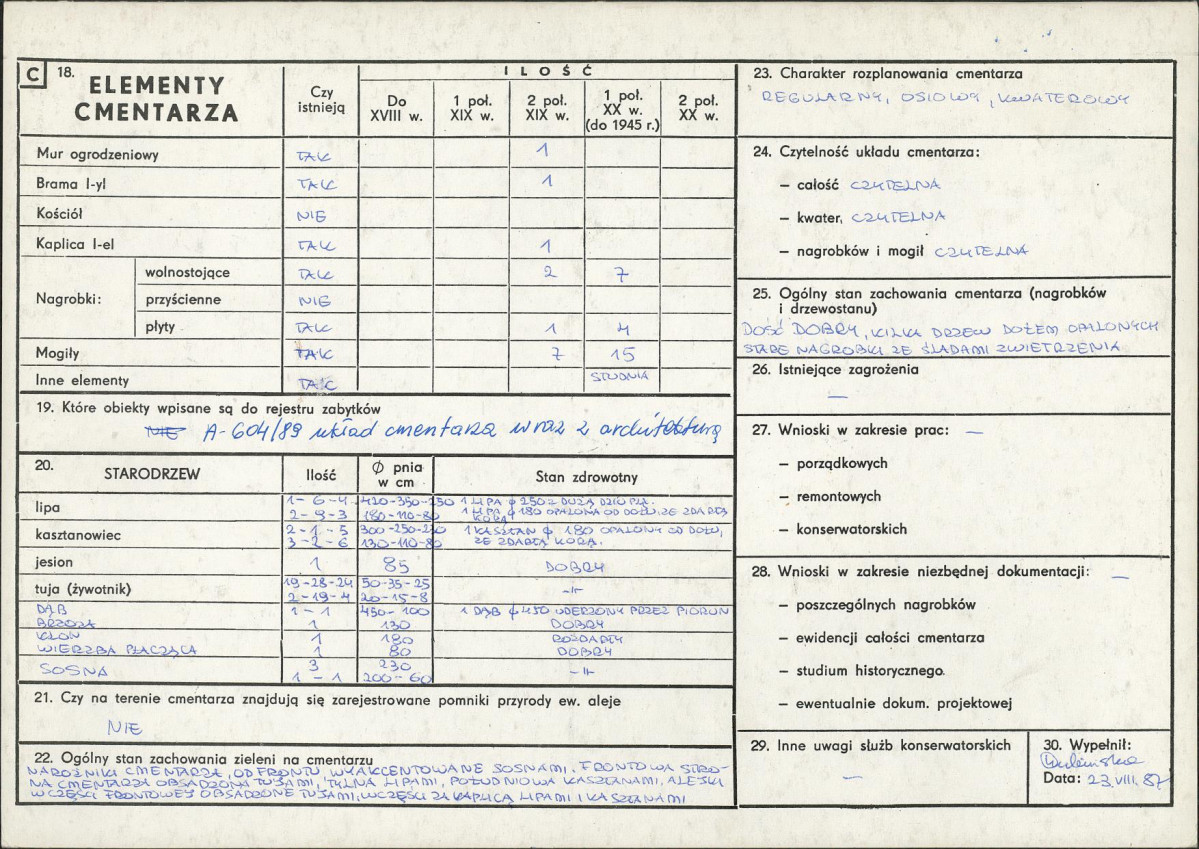 C 18. ELEMENTY CMENTARZA
Czy istnieją
ILOŚĆ
Do XVIII w.
1 poł. XIX w.
2 poł. XIX w.
1 poł. XX w. (do 1945 r.)
2 poł. XX w.
Mur ogrodzeniowy TAK 1
Brama I-yl TAK 1
Kościół NIE
Kaplica I-el TAK 1
Nagrobki:
wolnostojące TAK 2 7
przyścienne NIE
płyty TAK 1 4
Mogiły TAK 7 15
Inne elementy TAK STUDNIA
19. Które obiekty wpisane są do rejestru zabytków
NIE A-604/89 układ cmentarza wraz z architekturą
20. STARODRZEW
Ilość
Ø pnia w cm
Stan zdrowotny
lipa 1-6-4 420-350-250 1 LIPA ϕ 250 Z DUŻĄ DZIUPLĄ.
2-9-3 180-110-80 1 LIPA ϕ 180 OPALONA OD DOŁU, ZE ZDARTĄ KORĄ
kasztanowiec 2-1-5 300-250-220 1 KASZTAN ϕ 180 OPALONY OD DOŁU,
3-2-6 130-110-80 ZE ZDARTĄ KORĄ.
jesion 1 85 DOBRY
tuja (żywotnik) 19-28-24 50-35-25 -"-
2-19-4 20-15-8
DĄB 1-1 450-100 1 DĄB ϕ 450 UDERZONY PRZEZ PIORUN
BRZOZA 1 130 DOBRY
KLON 1 180 ROZDARTY
WIERZBA PŁACZĄCA 1 80 DOBRY
SOSNA 3 230 -"-
1-1 200-60
21. Czy na terenie cmentarza znajdują się zarejestrowane pomniki przyrody ew. aleje
NIE
22. Ogólny stan zachowania zieleni na cmentarzu
NAROŻNIKI CMENTARZA, OD FRONTU, WYAKCENTOWANE SOSNAMI. FRONTOWA STRO-
NA CMENTARZA OBSADZONA TUJAMI, TYLNA LIPAMI, POŁUDNIOWA KASZTANAMI, ALEJKI
W CZĘŚCI FRONTOWEJ OBSADZONE TUJAMI, W CZĘŚCI ZA KAPLICĄ LIPAMI I KASZTANAMI
23. Charakter rozplanowania cmentarza
REGULARNY, OSIOWY, KWATEROWY
24. Czytelność układu cmentarza:
– całość CZYTELNA
– kwater, CZYTELNA
– nagrobków i mogił CZYTELNA
25. Ogólny stan zachowania cmentarza (nagrobków
i drzewostanu)
DOŚĆ DOBRY, KILKA DRZEW DOŁEM OPALONYCH
STARE NAGROBKI ZE ŚLADAMI ZWIETRZENIA
26. Istniejące zagrożenia
—
27. Wnioski w zakresie prac: —
– porządkowych
– remontowych
– konserwatorskich
28. Wnioski w zakresie niezbędnej dokumentacji: —
– poszczególnych nagrobków
– ewidencji całości cmentarza
– studium historycznego.
– ewentualnie dokum. projektowej
29. Inne uwagi służb konserwatorskich
—
30. Wypełnił:
Data: 23.VIII.87